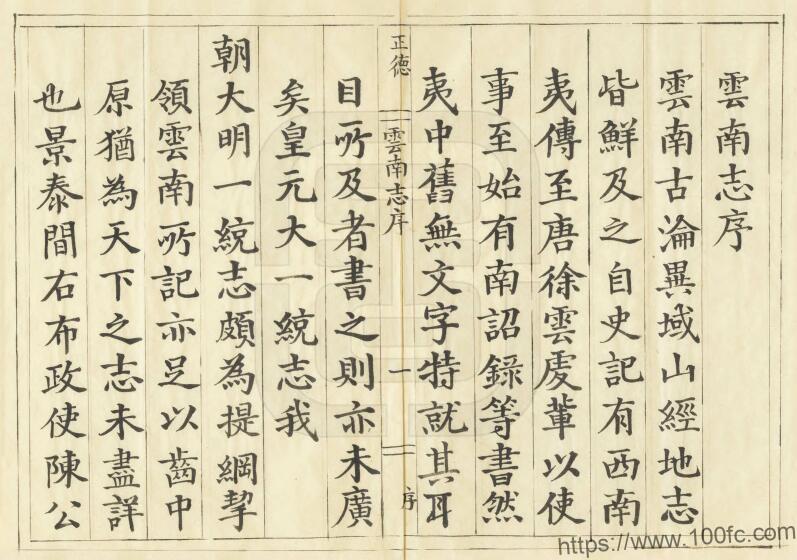 雲南志序
雲南古淪異域山經地志
皆鮮及之自史記有西南
夷傳至唐徐雲虔軰以使
事至始有南詔録等書然
夷中舊無文字特就其耳
正德
雲南志序
一
序
目所及者書之則亦未廣
矣皇元大一統志我
朝大明一統志頗為提綱挈
領雲南所記亦足以齒中
原猶為天下之志未盡詳
也景泰間右布政使陳公
https://www.100fc.com